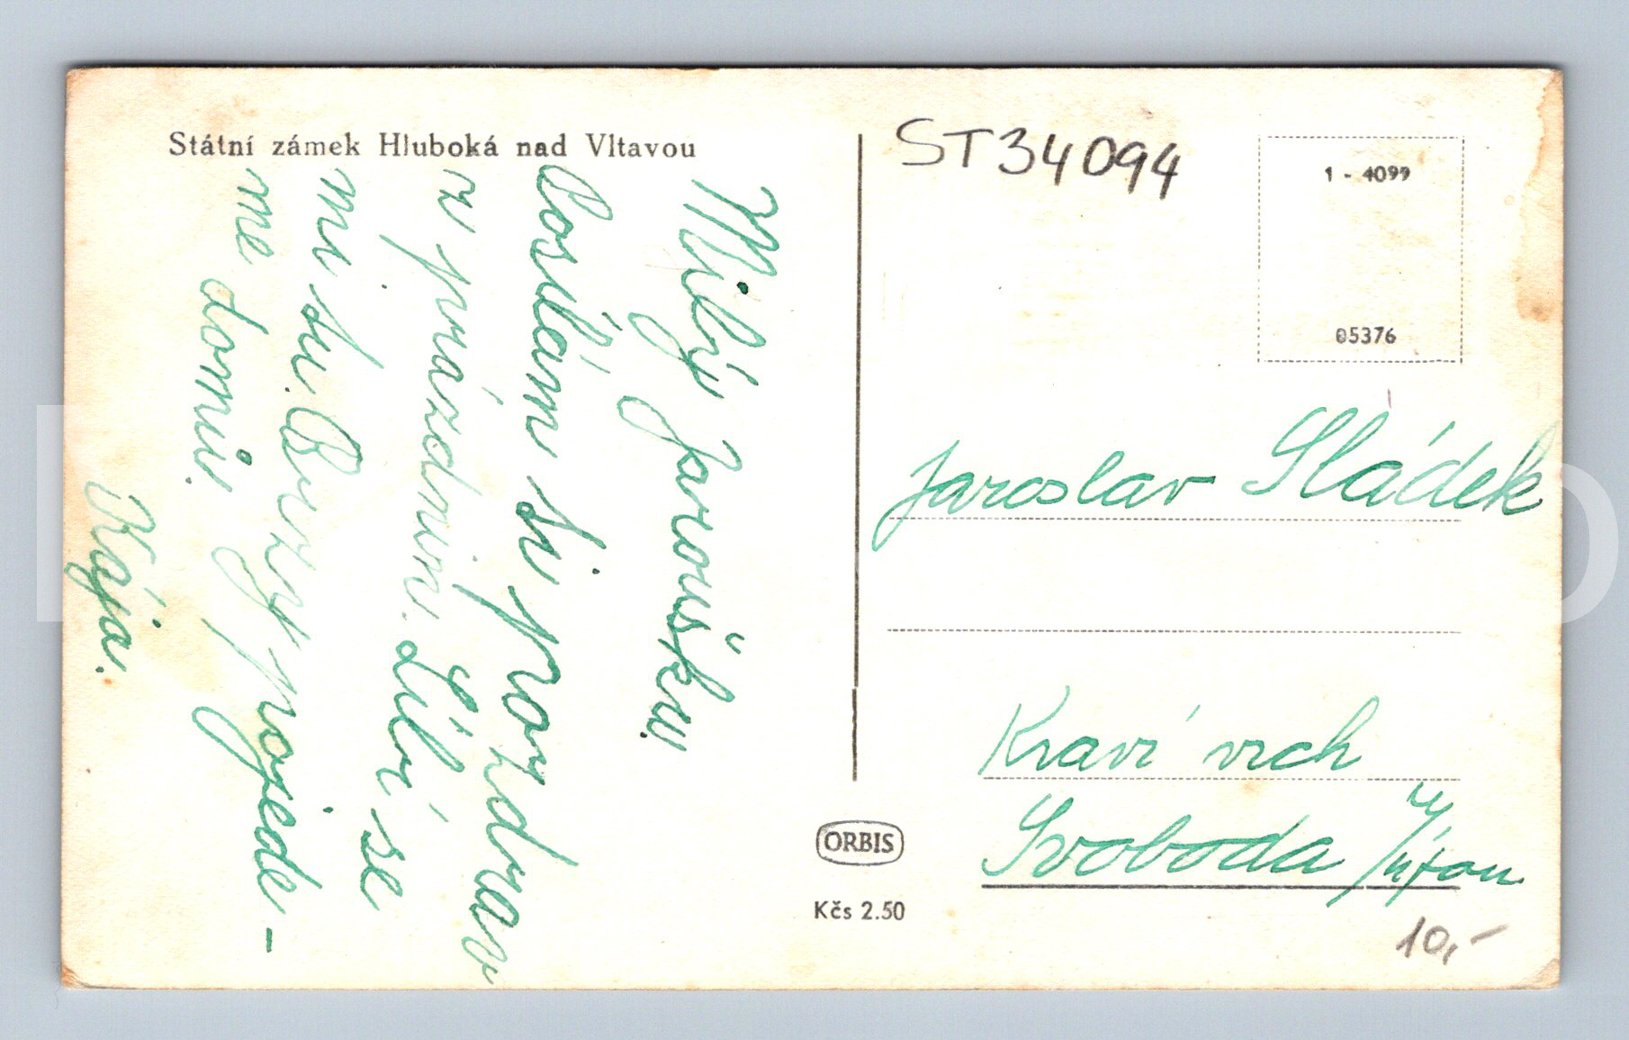 Státní zámek Hluboká nad Vltavou
Milý Jaroušku!
Posílám ti pozdrav
z prázdnin. Líbí se
mi tu. Brzy pojede-
me domů.
Kája.
ST34094
1 - 4099
05376
Jaroslav Sládek
Kraví vrch
Svoboda n/Úpou
ORBIS
Kčs 2.50
10,-